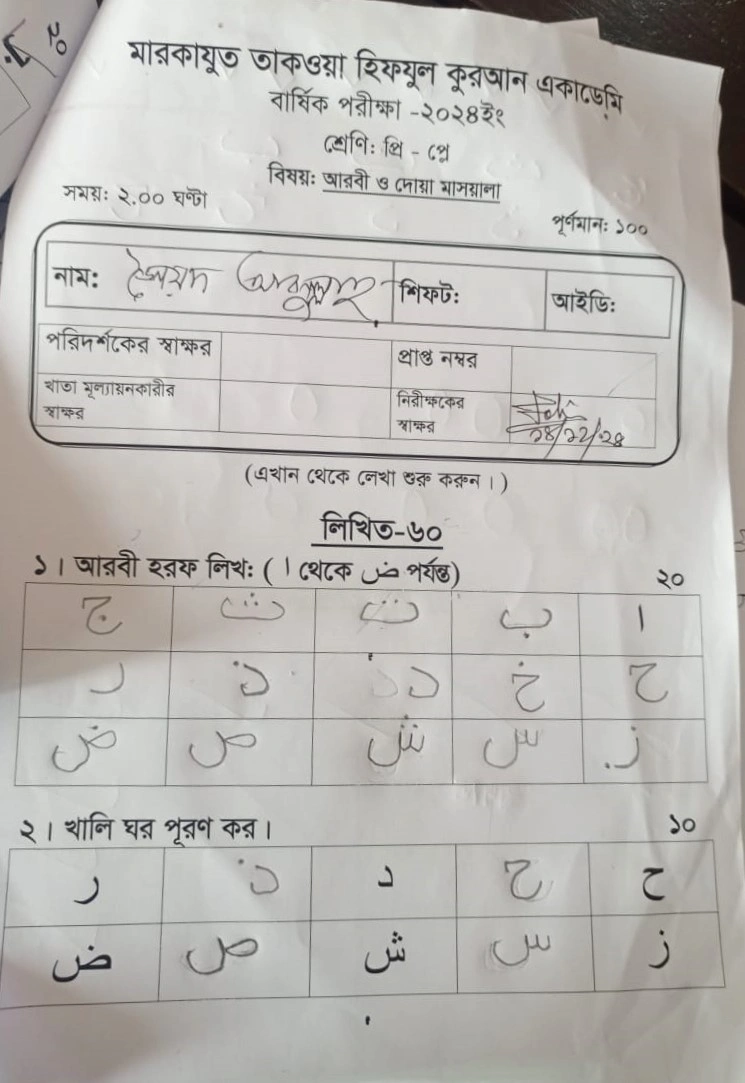 মারকাযুত তাকওয়া হিফযুল কুরআন একাডেমি
বার্ষিক পরীক্ষা -২০২৪ইং
শ্রেণি: প্রি - প্লে
বিষয়: আরবী ও দোয়া মাসয়ালা
সময়: ২.০০ ঘন্টা
পূর্ণমান: ১০০
নাম: সৈয়দ আবদুল্লাহ শিফট: আইডি:
পরিদর্শকের স্বাক্ষর প্রাপ্ত নম্বর
খাতা মূল্যায়নকারীর স্বাক্ষর নিরীক্ষকের স্বাক্ষর
২৪/১২/২৪
(এখান থেকে লেখা শুরু করুন।)
লিখিত-৬০
১। আরবী হরফ লিখ: ( ا থেকে ض পর্যন্ত) ২০
ا ب ت ث ج
ح خ د ذ ر
ز س ش ص ض
২। খালি ঘর পূরণ কর। ১০
ح خ د ذ ر
ز س ش ص ض